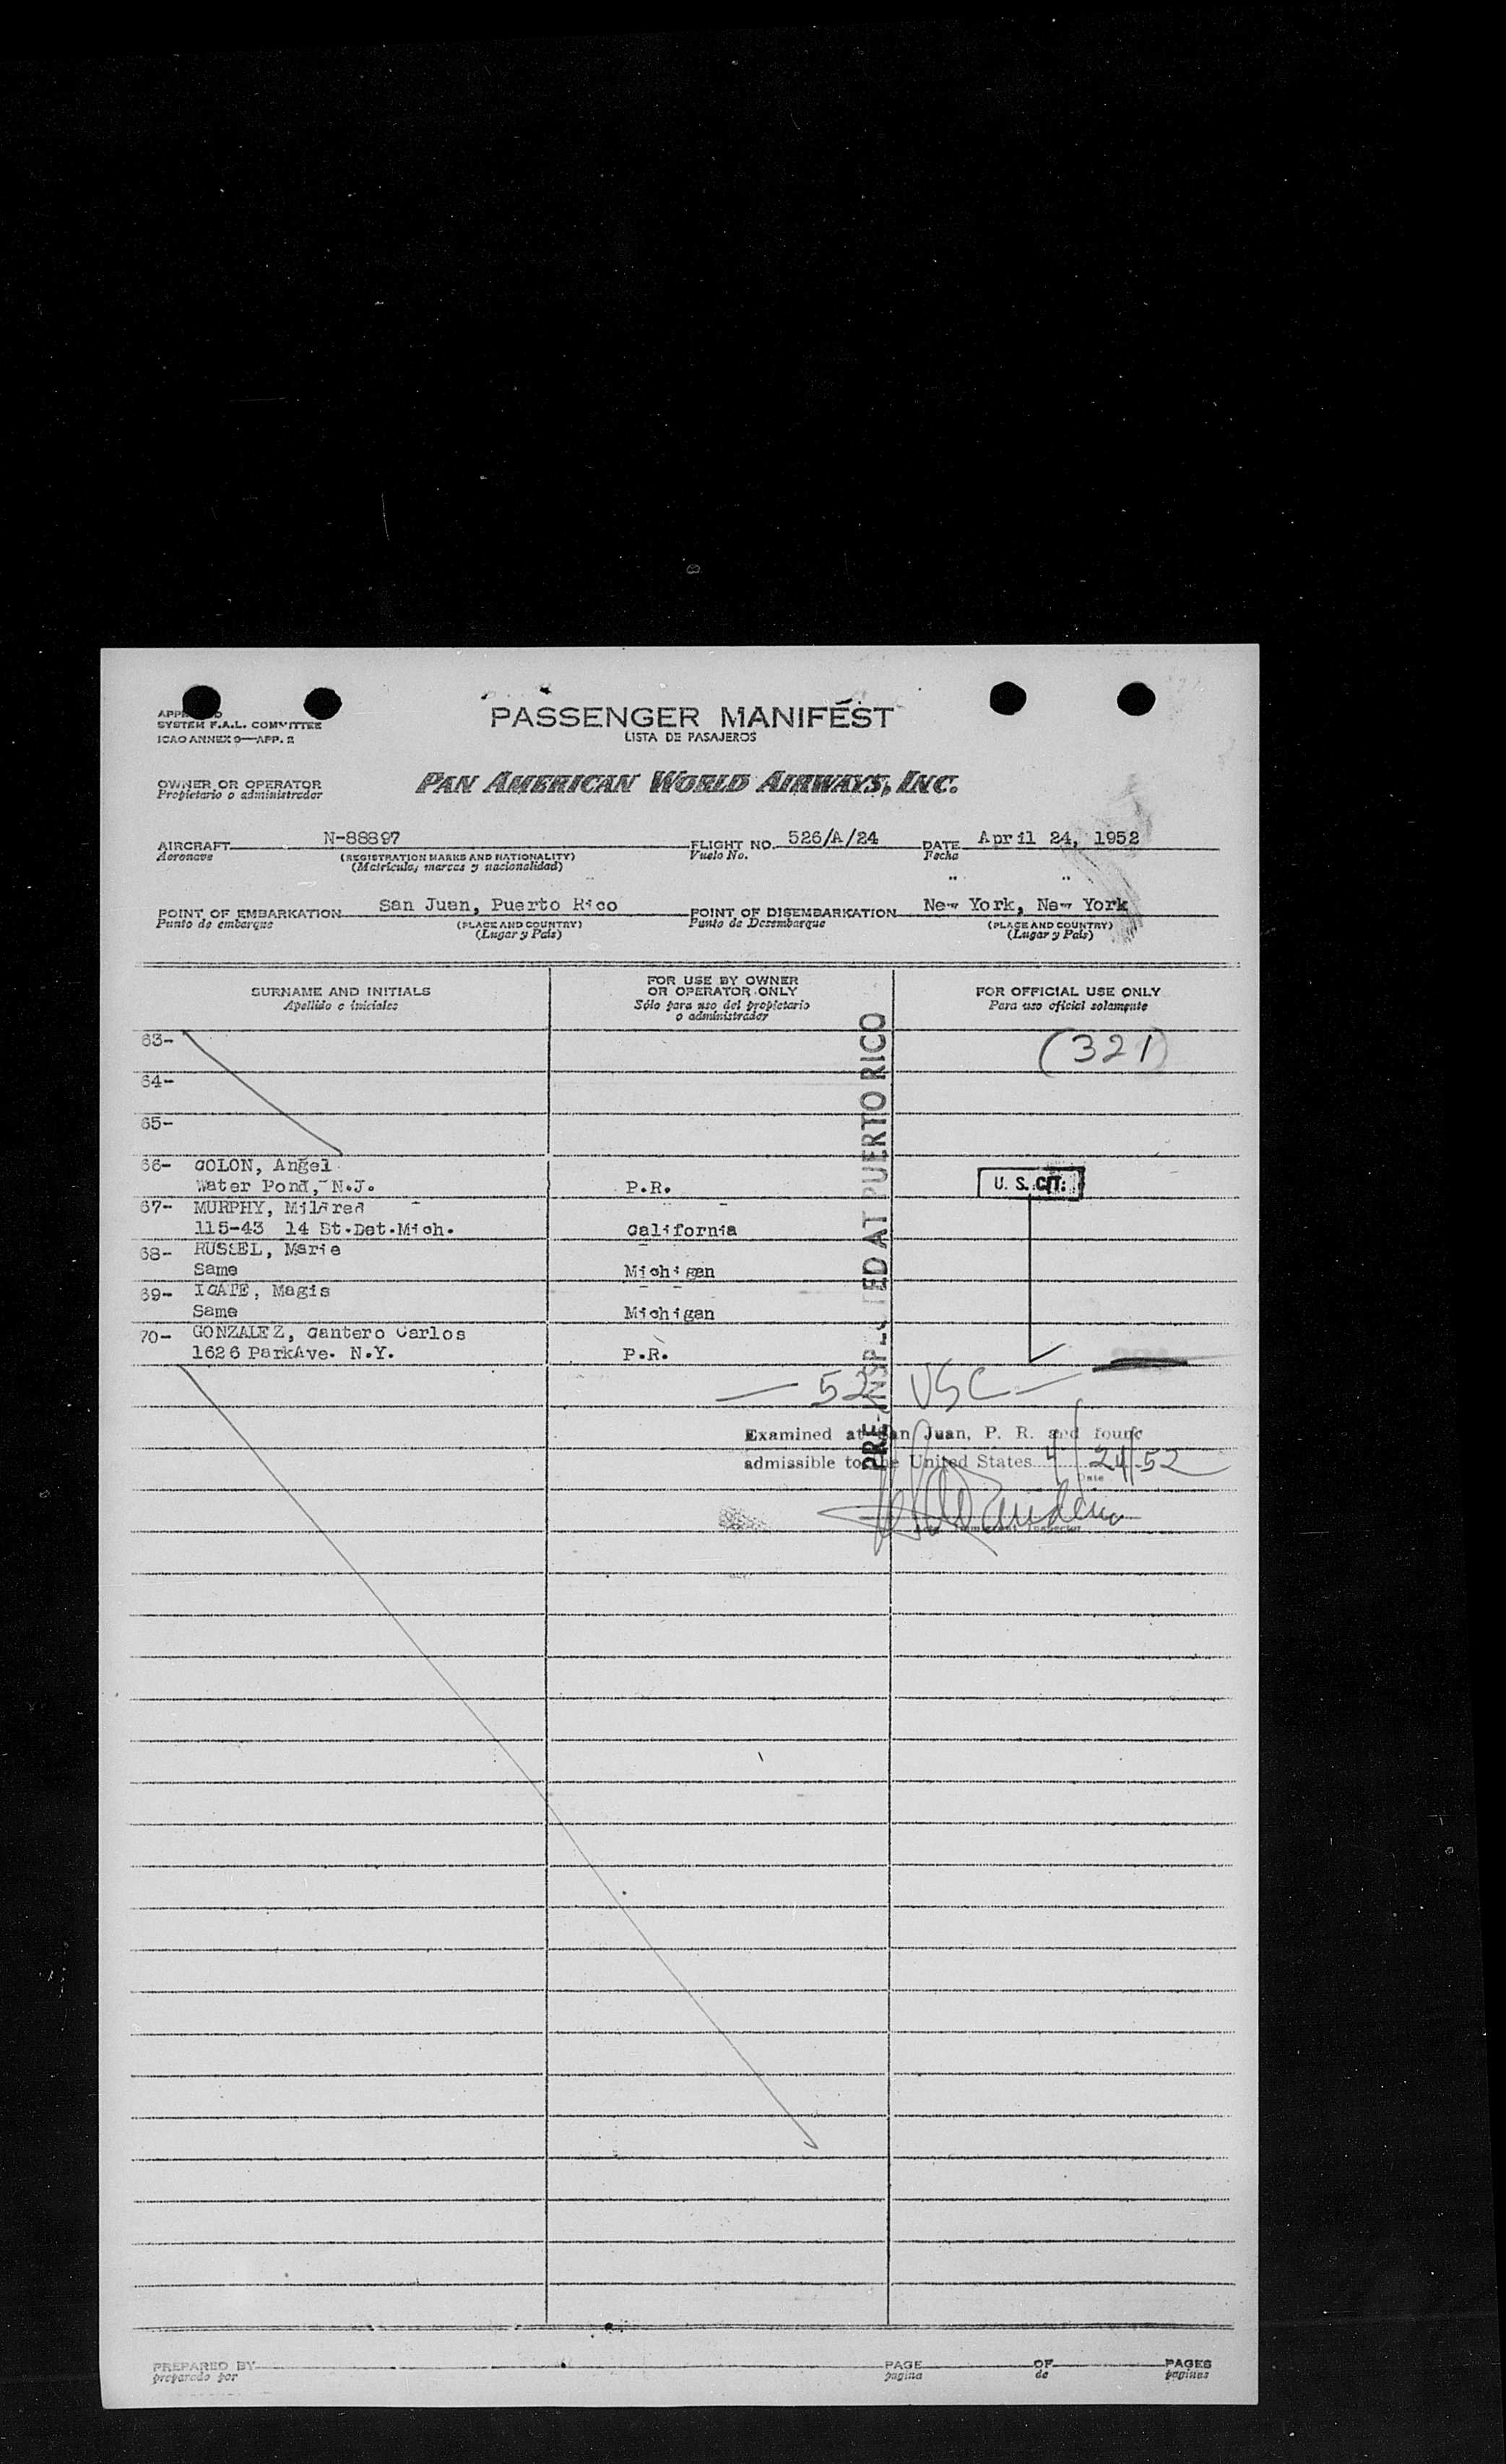 SYSTEM F.A.L. COMMITTEE
ICAO ANNEX 9—APP. 2
PASSENGER MANIFEST
LISTA DE PASAJEROS
OWNER OR OPERATOR
Propietario o administrador
PAN AMERICAN WORLD AIRWAYS, INC.
AIRCRAFT N-88897 FLIGHT NO. 526/A/24 DATE April 24, 1952
Aeronave (REGISTRATION MARKS AND NATIONALITY) Vuelo No. Fecha
(Matrículas, marcas y nacionalidad)
POINT OF EMBARKATION San Juan, Puerto Rico POINT OF DISEMBARKATION New York, New York
Punto de embarque (PLACE AND COUNTRY) Punto de Desembarque (PLACE AND COUNTRY)
(Lugar y País) (Lugar y País)
SURNAME AND INITIALS
Apellido e iniciales
FOR USE BY OWNER
OR OPERATOR ONLY
Sólo para uso del propietario
o administrador
FOR OFFICIAL USE ONLY
Para uso oficial solamente
63- (321)
64-
65-
66- COLON, Angel
Water Pond, N.J. P.R. U. S. CIT.
67- MURPHY, Mildred
115-43 14 St.Det.Mich. California
68- RUSSEL, Marie
Same Michigan
69- IGATE, Magis
Same Michigan
70- GONZALEZ, Cantero Carlos
1626 ParkAve. N.Y. P.R.
PRE-INSPECTED AT PUERTO RICO
— 52 USC —
Examined at San Juan, P. R. and found
admissible to the United States 4/24/52
Date
Immigrant Inspector
PREPARED BY PAGE OF PAGES
preparado por pagina de paginas